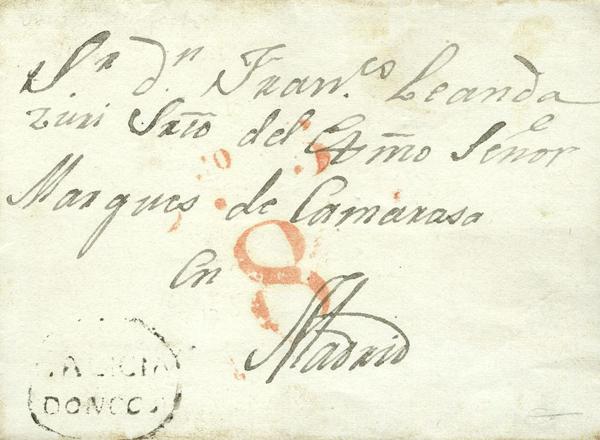 Sr dn Franco. Leanda
zuri Srio del Exmo Señor
Marques de Camarasa
en
8
Madrid
GALICIA